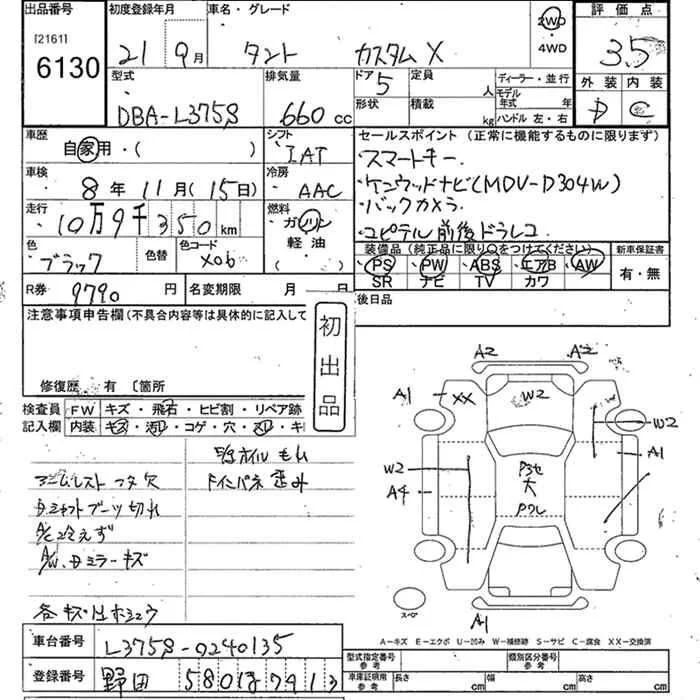 出品番号
[2161]
6130
初度登録年月
21 9月
車名・グレード
タント カスタムX
2WD
・
4WD
評価点
3.5
外装 内装
D C
型式
DBA-L375S
排気量
660 cc
ドア 5
形状
定員
人
積載
kg
ディーラー・並行
モデル年式 年
ハンドル 左・右
車歴
自家用・( )
シフト
IAT
セールスポイント(正常に機能するものに限ります)
・スマートキー
・ケンウッドナビ(MDV-D304W)
・バックカメラ
・ユピテル前後ドラレコ
車検
8年 11月(15日)
冷房
AAC
走行
10万9千350 km
燃料
ガソリン
軽油
( )
色
ブラック
色替
色コード
X06
装備品(純正品に限り○をつけてください)
・PS ・PW ・ABS ・エアB ・AW
SR ナビ TV カワ
新車保証書
有・無
R券 9790 円
名変期限 月 日
後日品
注意事項申告欄(不具合内容等は具体的に記入して
初出品
修復歴 有 〔箇所
検査員記入欄
FW キズ・飛石・ヒビ割・リペア跡
内装 キズ・汚レ・コゲ・穴・スレ・キ
アームレスト フタ欠
D.シャフトブーツ切れ
A/C冷えず
A/W、Dミラーキズ
各キズ・凹ホショウ
E/gオイルもれ
ドインパネ歪み
A2 A2
A1 XX W2
W2
A1
W2
A4
A1
スペア
A－キズ E－エクボ U－凹み W－補修跡 S－サビ C－腐食 XX－交換済
車台番号 L375S-0240135
登録番号 野田 580 7913
型式指定番号 参考
類別区分番号 参考
車庫証明用 参考
長さ cm 幅 cm 高さ cm